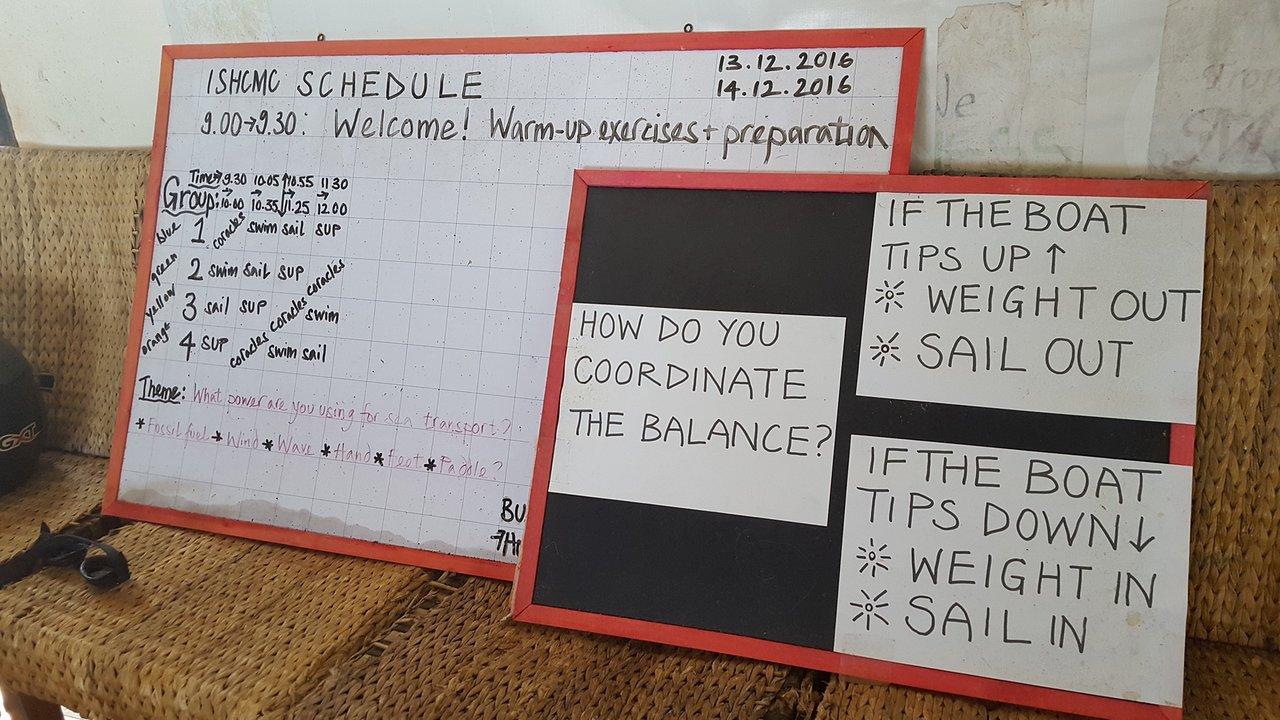 ISHCMC SCHEDULE
13.12.2016
14.12.2016
9.00→9.30: Welcome! Warm-up exercises + preparation
Time→ 9.30 10.05 ↑10.55 11.30
Group: 10.00 10.35 ↓11.25 12.00
blue 1 coracles swim sail SUP
green 2 swim sail SUP coracles
yellow 3 sail SUP coracles swim
orange 4 SUP coracles swim sail
Theme: What power are you using for sea transport?
* Fossil fuel * Wind * Wave * Hand * Feet * Paddle?
BU
HOW DO YOU
COORDINATE
THE BALANCE?
IF THE BOAT
TIPS UP ↑
☼ WEIGHT OUT
☼ SAIL OUT
IF THE BOAT
TIPS DOWN ↓
☼ WEIGHT IN
☼ SAIL IN